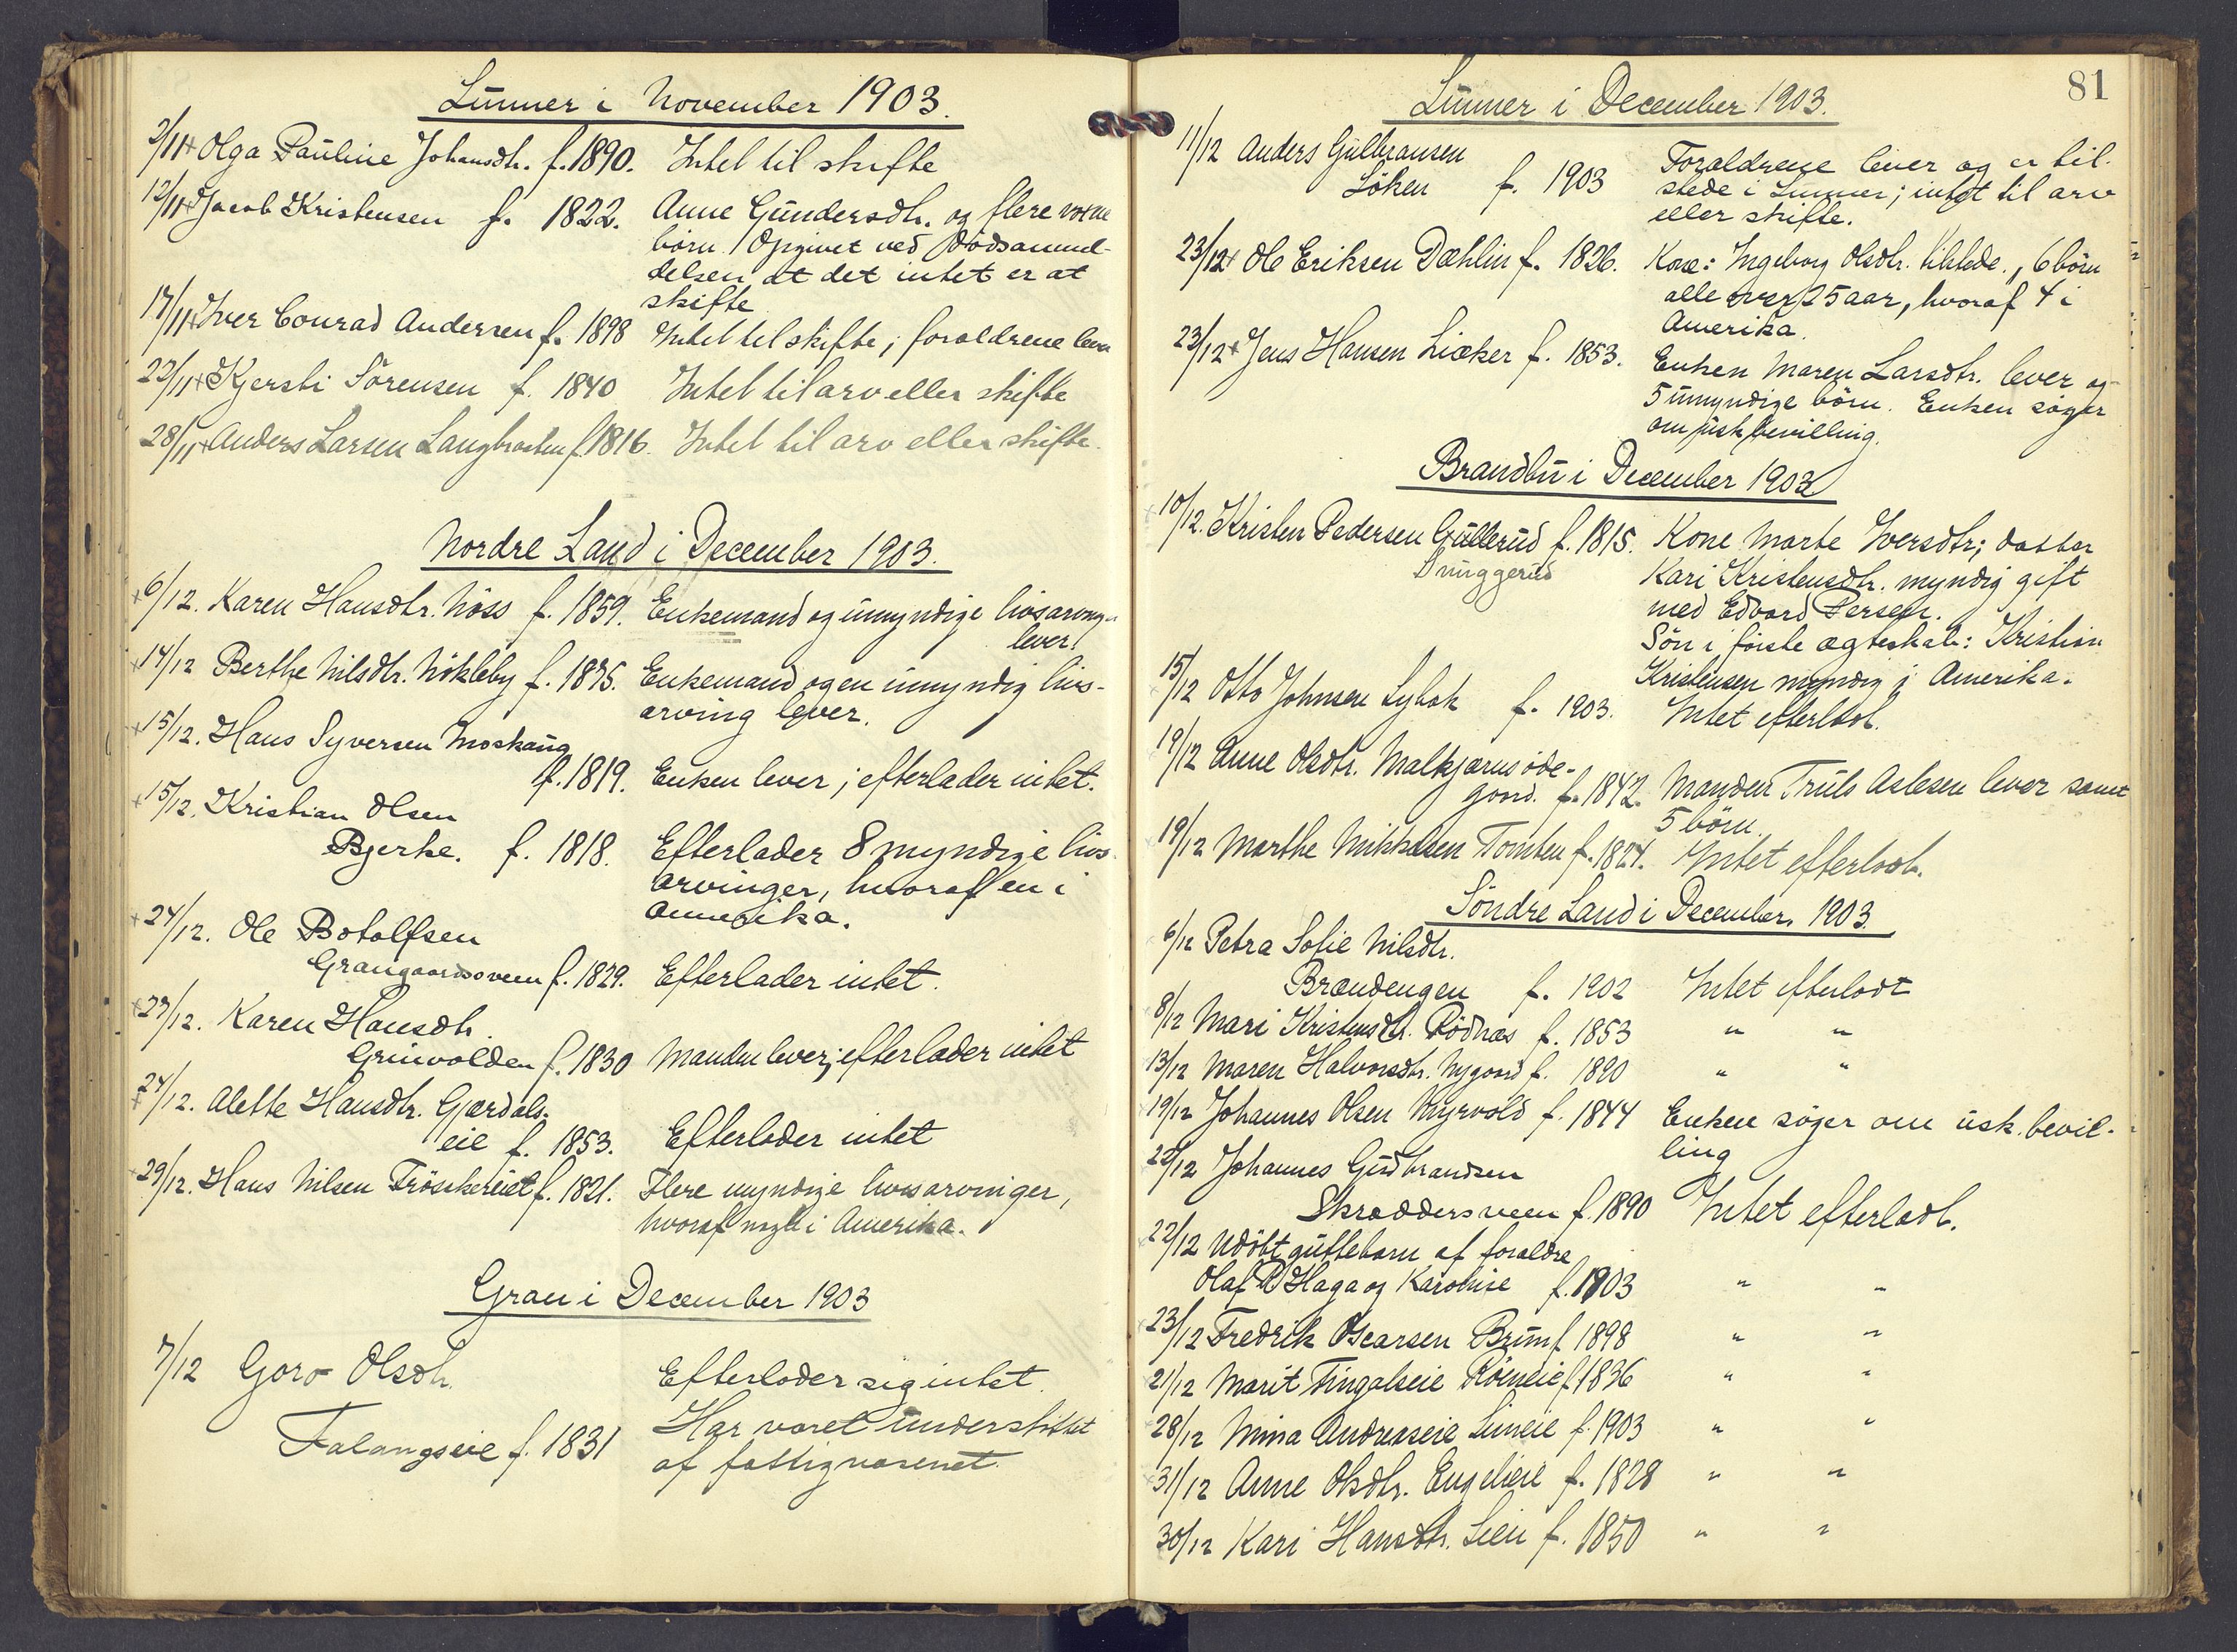 Lunner i November 1903.
2/11+ Olga Pauline Johansdtr. f. 1890. Intet til skifte
12/11+ Jacob Kristensen f. 1822. Anne Gundersdtr. og flere voxne
börn. Opgivet ved dödsanmel-
delsen at det intet er at
skifte
17/11+ Iver Conrad Andersen f. 1898 Intet til skifte; forældrene lever
23/11+ Kjersti Sörensen f. 1840 Intet til arv eller skifte
28/11+ Anders Larsen Langbraaten f. 1816. Intet til arv eller skifte.
Nordre Land i December 1903.
+6/12. Karen Hansdtr. Nöss f. 1859. Enkemand og umyndige livsarving.
lever.
+14/12 Berthe Nilsdtr. Nökleby f. 1875. Enkemand og en umyndig livs-
arving lever.
+15/12. Hans Syversen Moskaug
f. 1819. Enken lever; efterlader intet.
+15/12. Kristian Olsen
Bjerke. f. 1818. Efterlader 8 myndige livs
arvinger, hvoraf en i
Amerika.
+24/12. Ole Botolfsen
Grangaardsveen f. 1829. Efterlader intet.
+27/12. Karen Hansdtr.
Grinvolden f. 1830 Manden lever; efterlader intet
+24/12. Alette Hansdtr. Gjærdals-
eie f. 1853. Efterlader intet
+29/12. Hans Nilsen Fröshereiet f. 1821. Flere myndige livsarvinger,
hvoraf nogle i Amerika.
Gran i December 1903
7/12 Goro Olsdtr. Efterlader sig intet.
Falangseie f. 1831 Har været understöttet
af fattigvæsenet.
81
Lunner i December 1903.
11/12 Anders Gulbransen Forældrene lever og er til-
Löken f. 1903 stede i Lunner; intet til arv
eller skifte.
23/12+ Ole Eriksen Dæhlin f. 1826. Kone: Ingeborg Olsdtr. tilstede., 6 börn
alle over 25 aar, hvoraf 4 i
Amerika.
23/12+ Jens Hansen Liæker f. 1853. Enken Maren Larsdtr. lever og
5 umyndige börn. Enken söger
om usk. bevilling.
Brandbu i December 1903
10/12. Kristen Pedersen Gullerud f. 1815. Kone Marte Iversdtr; datter
Druggerud Kari Kristensdtr. myndig gift
med Edvard Persen.
Sön i förste ægteskab: Kristian
Kristensen myndig i Amerika.
15/12 Otto Johnsen Lybæk f. 1903. Intet efterladt.
19/12 Anne Olsdtr. Malkjærnsöde-
gaard. f. 1842. Manden Truls Aslesen lever samt
5 börn.
19/12 Marthe Mikkelsen Tomten f. 1824. Intet efterladt.
Söndre Land i December 1903.
6/12 Petra Sofie Nilsdtr.
Brændengen f. 1902 Intet efterladt
8/12 Mari Kristensdtr. Rödnæs f. 1853 " "
13/12 Maren Halvorsdtr. Nygaard f. 1820 " "
19/12 Johannes Olsen Myrvold f. 1844 Enken söger om usk. bevil-
ling
22/12 Johannes Gudbrandsen
Skræddersveen f. 1890 Intet efterladt.
22/12 Udöbt guttebarn af forældre
Olaf P. Haga og Karoline f. 1903 " "
23/12 Fredrik Oscarsen Brum f. 1898 " "
21/12 Marit Fingalseie Röineie f. 1836 " "
28/12 Mina Andreaseie Limeie f. 1903 " "
31/12 Anne Olsdtr. Engelieie f. 1828 " "
30/12 Kari Hansdtr. Lien f. 1850 " "